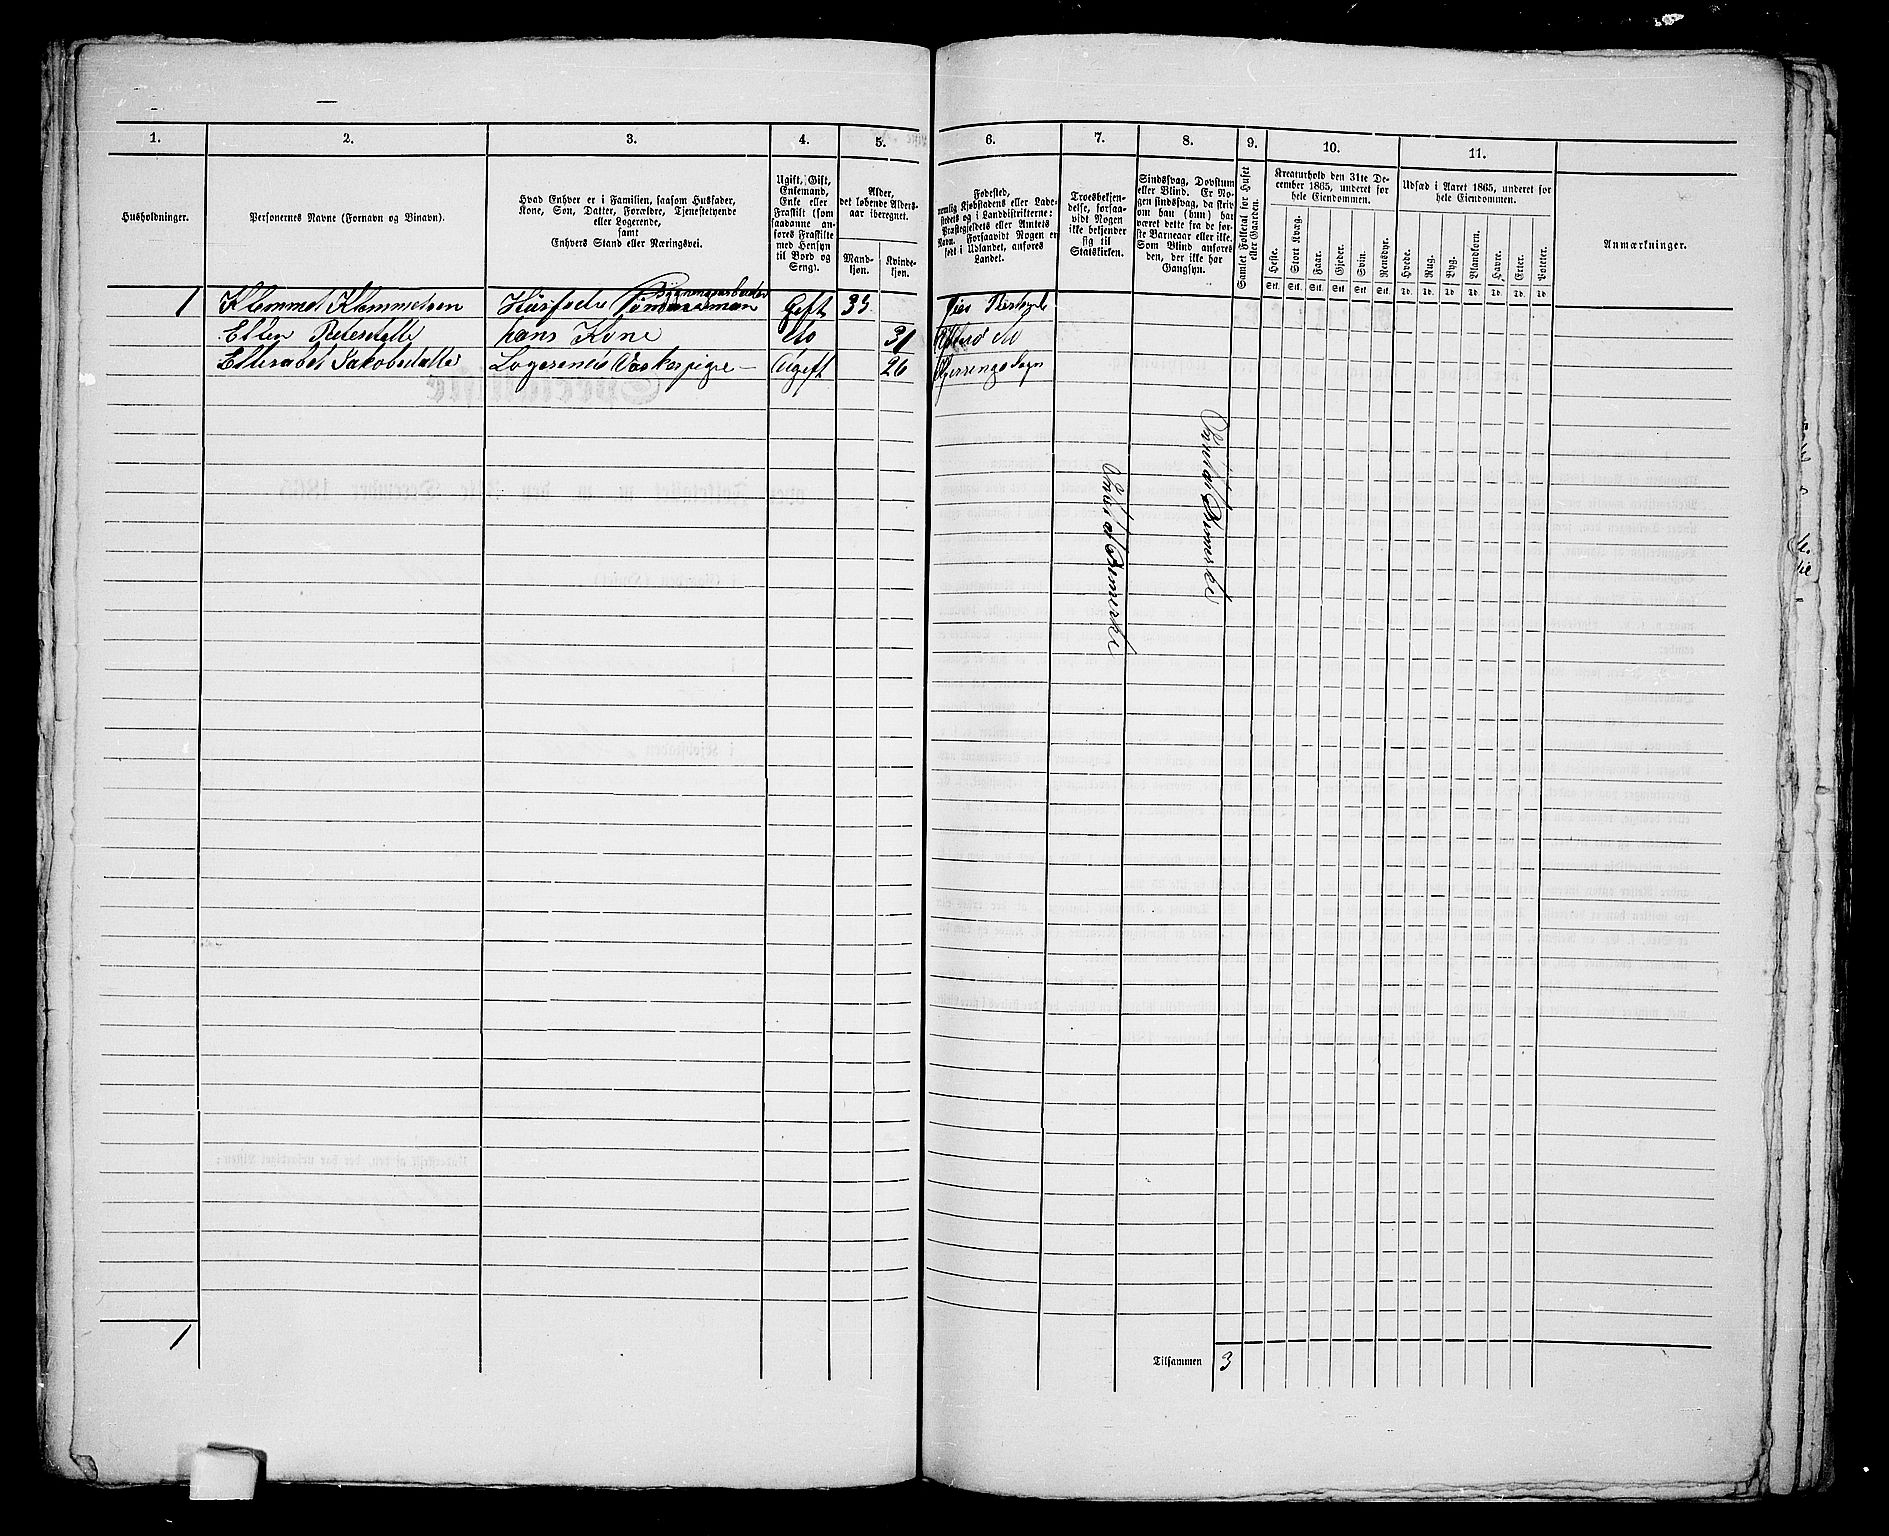 1. 2. 3. 4. 5. 6. 7. 8. 9. 10. 11.
Husholdninger.
Personernes Navne (Fornavn og Binavn).
Hvad Enhver er i Familien, saasom Husfader,
Kone, Søn, Datter, Forældre, Tjenestetyende
eller Logerende,
samt
Enhvers Stand eller Næringsvei.
Ugift, Gift,
Enkemand,
Enke eller
Fraskilt (som
saadanne an-
føres Fraskilte
med Hensyn
til Bord og
Seng).
Alder,
det løbende Alders-
aar iberegnet.
Mand-
kjøn.
Kvinde-
kjøn.
Fødested,
nemlig Kjøbstadens eller Lade-
stedets og i Landdistrikterne:
Præstegjeldets eller Amtets
Navn. Forsaavidt Nogen er
født i Udlandet, anføres
Landet.
Troesbekjen-
delse, forsaa-
vidt Nogen
ikke bekjender
sig til
Statskirken.
Sindssvag, Døvstum
eller Blind. Er No-
gen sindssvag, da skriv
om han (hun) har
været dette fra de før-
ste Barneaar eller ikke.
Som Blind anføres
den, der ikke har
Gangsyn.
Samlet Folketal for Huset
eller Gaarden.
Kreaturhold den 31te De-
cember 1865, underet for
hele Eiendommen.
Heste. Stort Kvæg. Faar. Gjeder. Svin. Rensdyr.
Stk. Stk. Stk. Stk. Stk. Stk.
Udsæd i Aaret 1865, underet for
hele Eiendommen.
Hvede. Rug. Byg. Blandkorn. Havre. Erter. Poteter.
Td. Td. Td. Td. Td. Td. Td.
Anmærkninger.
Bygningsarbeider
1 Klemmet Klemmetsen Husfader Tømmerman Geft 33
Ellen hans Kone do 31
Ellesabet Jakobsdatter Logerende Vaskepige Ugeft 26
Intet at Bemerke
Intet at Bemerke
1
Tilsammen 3